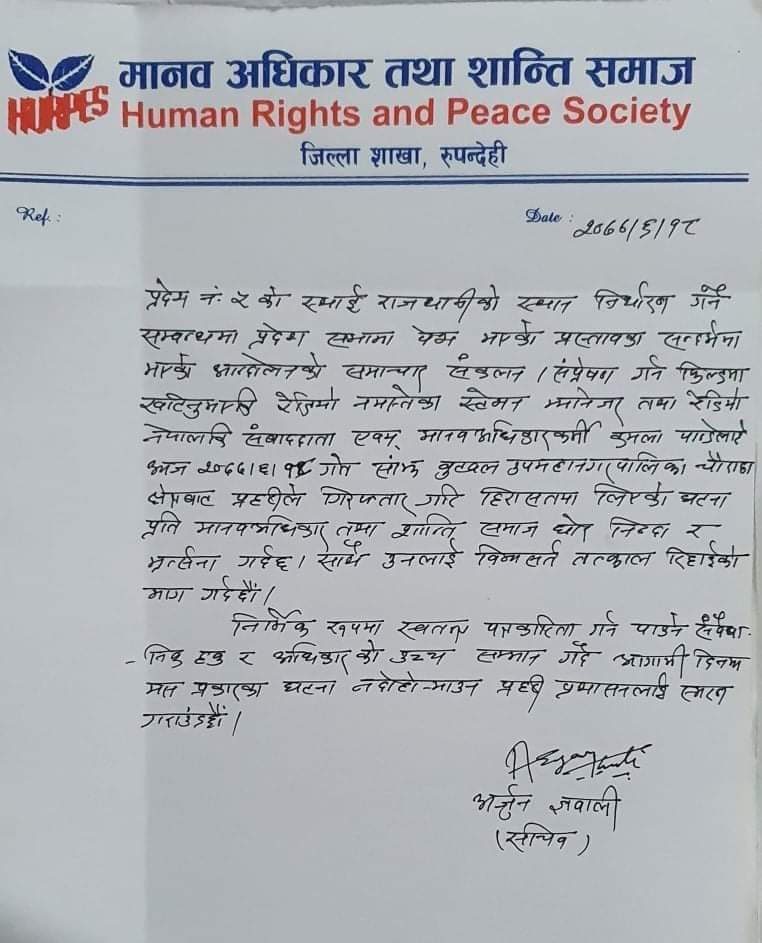 मानव अधिकार तथा शान्ति समाज
HURPES
Human Rights and Peace Society
जिल्ला शाखा, रुपन्देही
Ref.:
Date : २०७७/६/१८
प्रदेश नं: ५ को स्थाई राजधानीको स्थान निर्धारण गर्ने
सम्वन्धमा प्रदेश सभामा पेस भएको प्रस्तावका सन्दर्भमा
भएको आन्दोलनको समाचार संकलन / संप्रेषण गर्न फिल्डमा
खटिनुभएकी रेडियो नमस्तेका स्टेसन म्यानेजर तथा रेडियो
नेपालकि संवाददाता एवम् मानवअधिकारकर्मी कमला पाण्डेलाई
आज २०७७।६।१८ गते सांझ बुटवल उपमहानगरपालिका चौराहा
क्षेत्रबाट प्रहरीले गिरफ्तार गरि हिरासतमा लिएको घटना
प्रति मानवअधिकार तथा शान्ति समाज घोर निन्दा र
भर्त्सना गर्दछ। साथै उनलाई विनासर्त तत्काल रिहाईको
माग गर्दछौं।
निर्भिक रुपमा स्वतन्त्र पत्रकारिता गर्न पाउने संवैधा-
-निक हक र अधिकार को उच्च सम्मान गर्दै आगामी दिनमा
यस प्रकारका घटना नदोहोर्‍याउन प्रहरी प्रशासनलाई स्मरण
गराउँछौं।
अर्जुन ज्ञवाली
(सचिव)